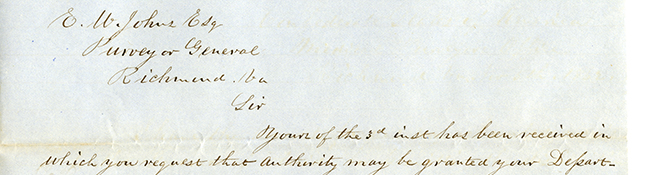 E. W. Johns Esq
Purveyor General
Richmond. Va
Sir
Yours of the 3d inst has been received in
which you request that authority may be granted your Depart-